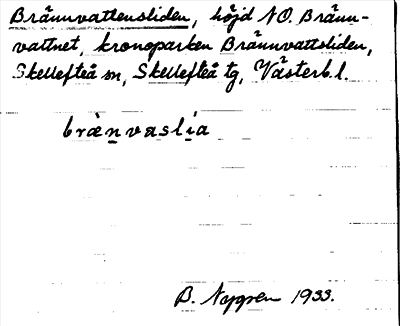 Brännvattensliden, höjd NO. Bränn-
vattnet, kronoparken Brännvattsliden,
Skellefteå sn, Skellefteå tg, Västerb. l.
brænvaslia
B. Nygren 1933.